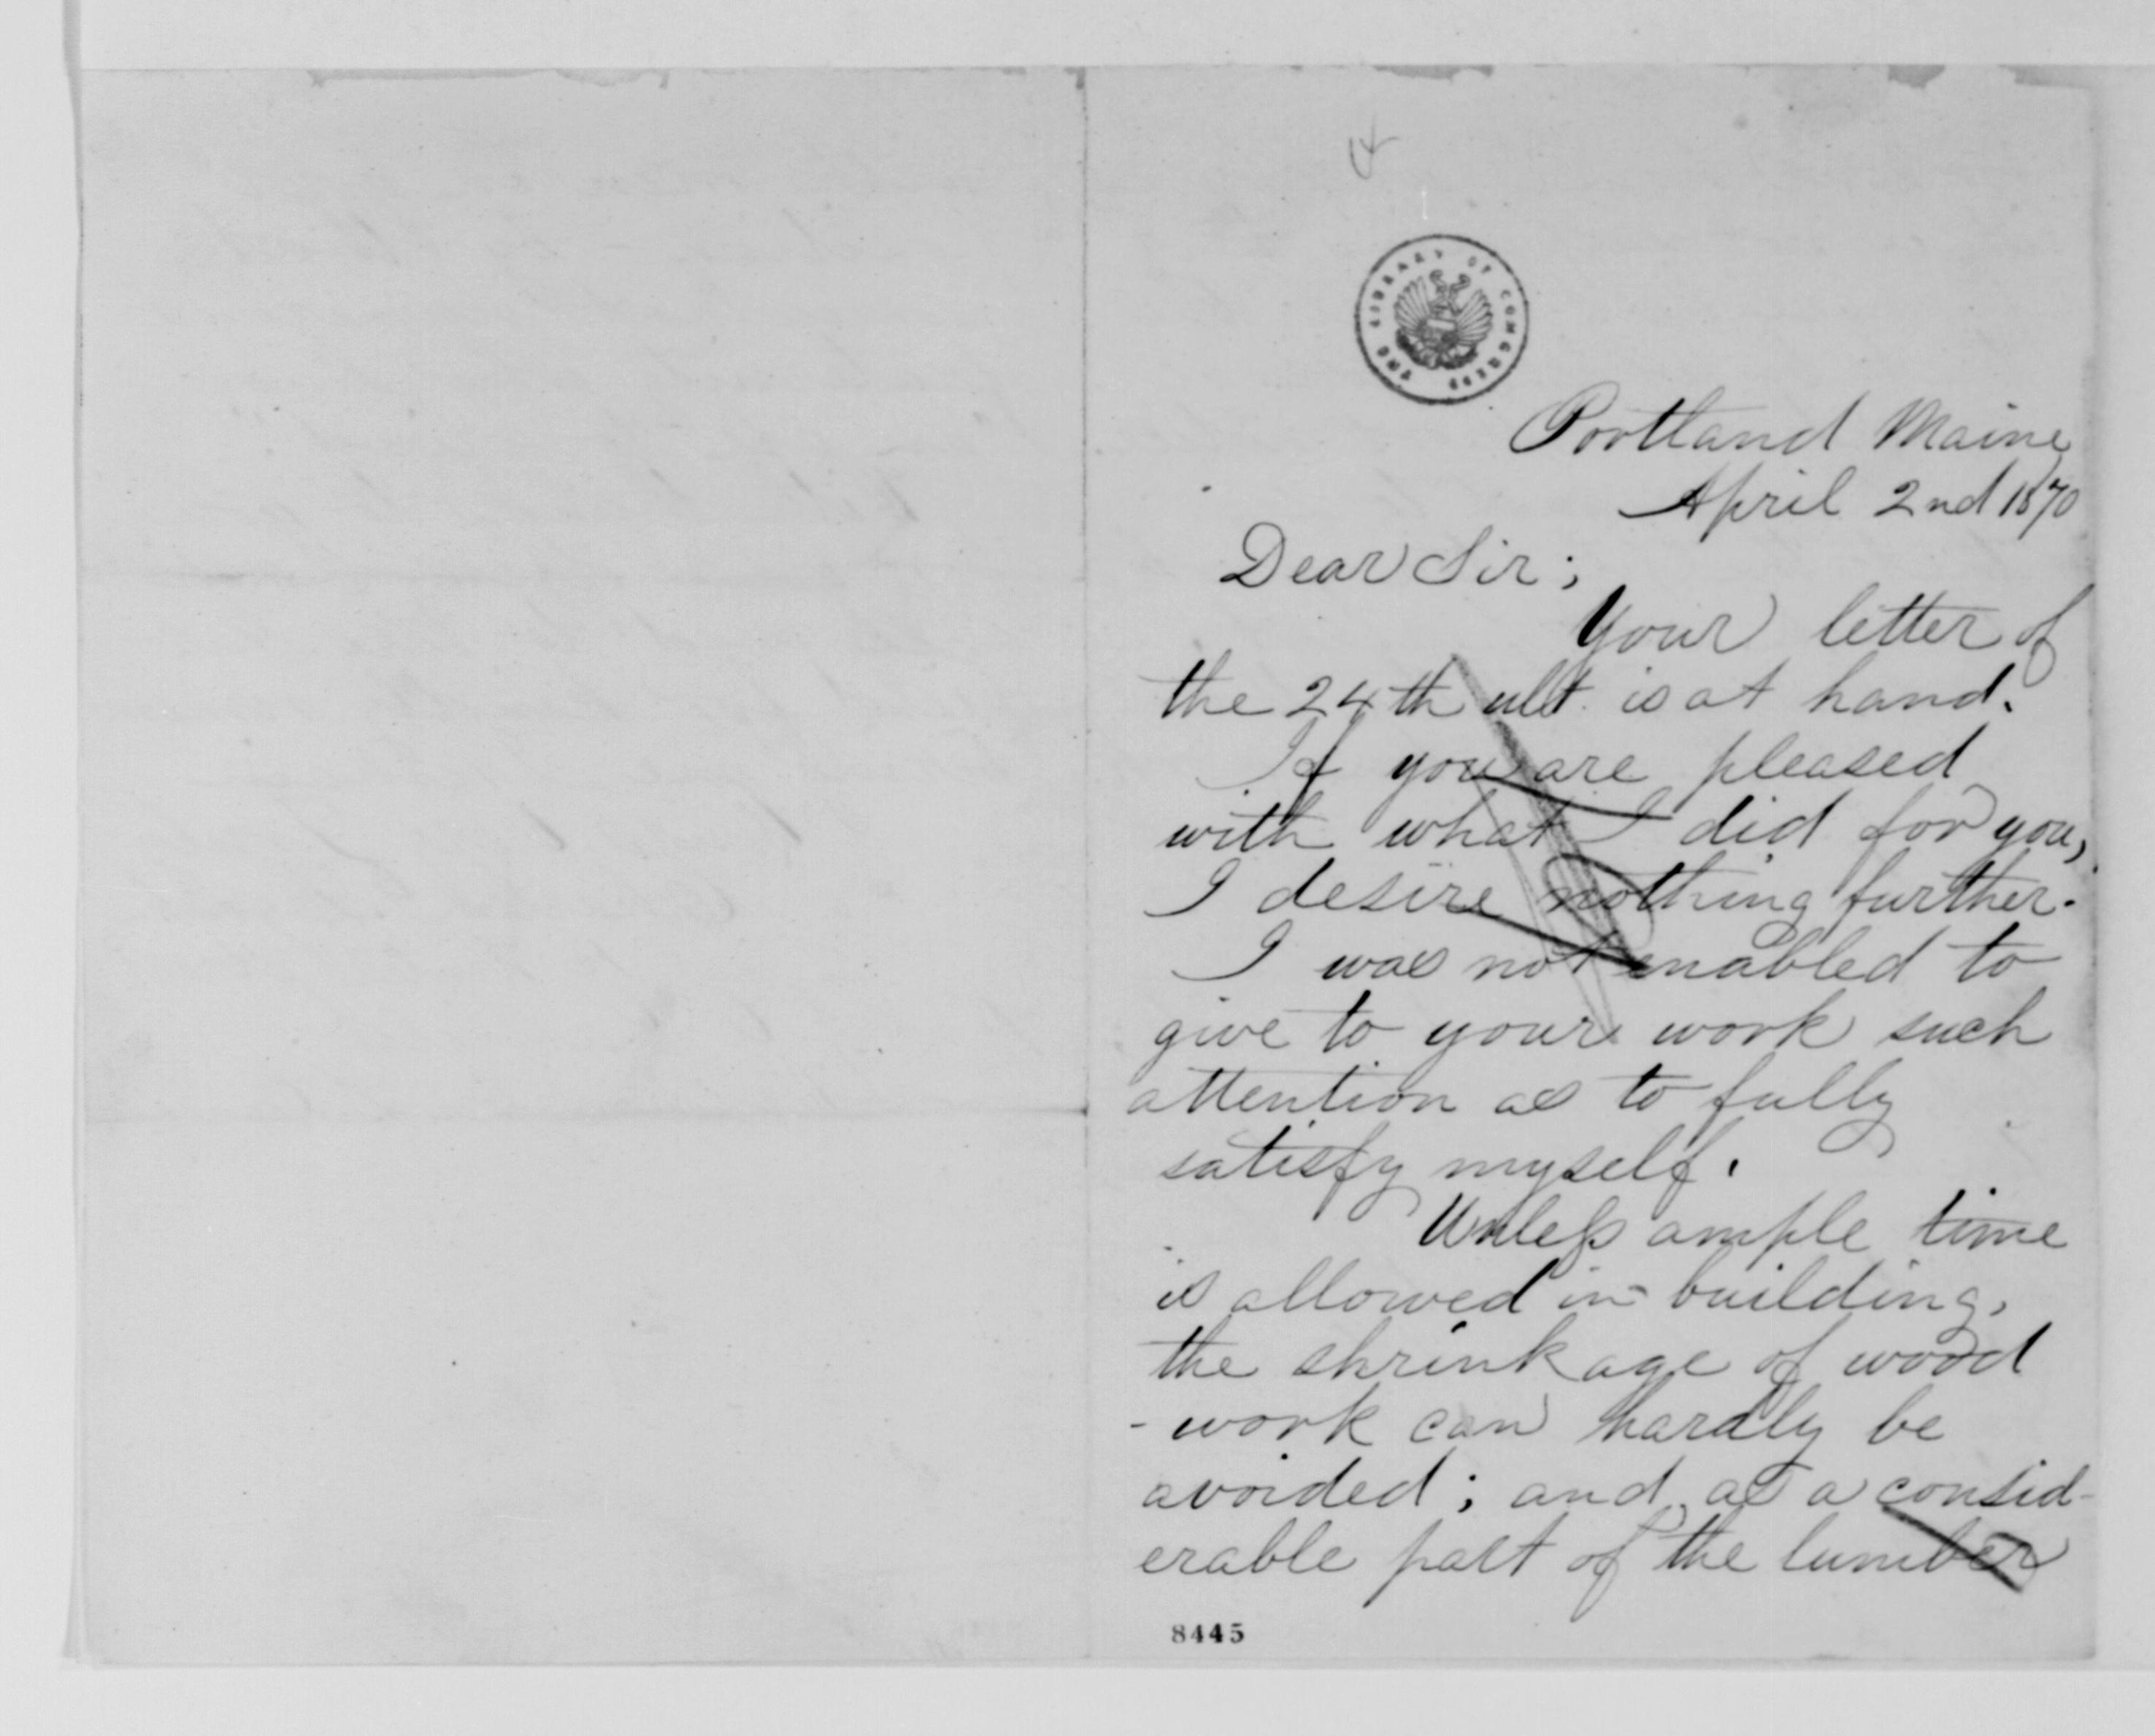 THE LIBRARY OF CONGRESS
Portland Maine
April 2nd 1870
Dear Sir;
Your letter of
the 24th ult. is at hand.
If you are pleased
with what I did for you,
I desire nothing further.
I was not enabled to
give to your work such
attention as to fully
satisfy myself.
Unless ample time
is allowed in building,
the shrinkage of wood
-work can hardly be
avoided; and as a consid-
erable part of the lumber
8445